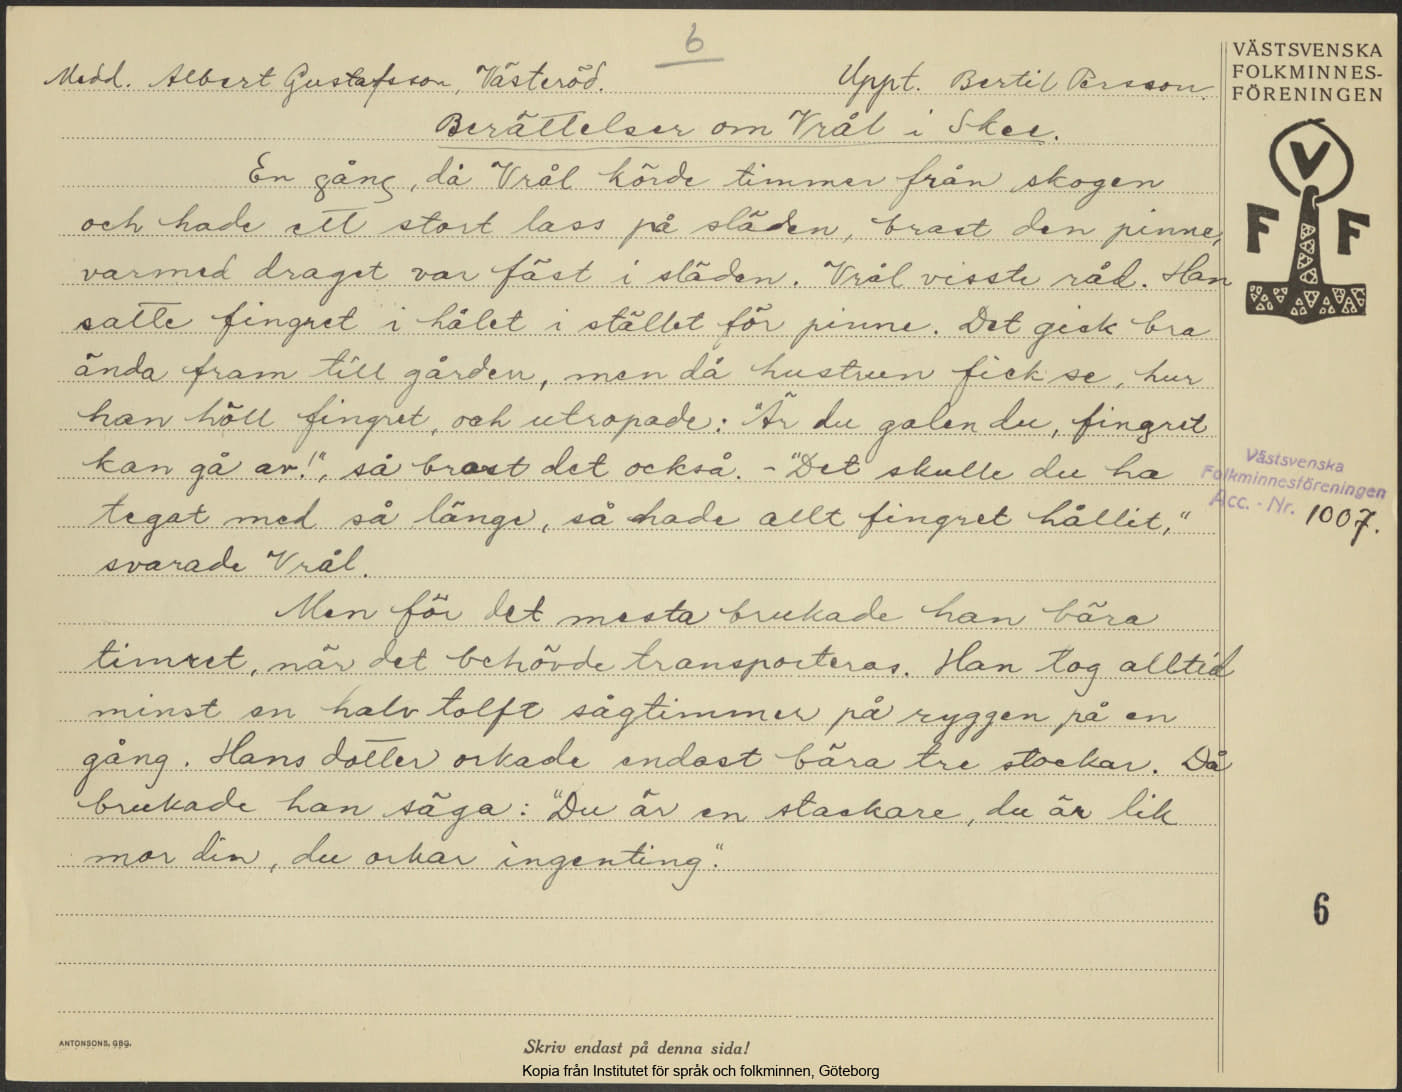 6
Medd. Albert Gustafsson, Västeröd. Uppt. Bertil Persson.
Berättelser om Vrål i Skee.
En gång, då Vrål körde timmer från skogen
och hade ett stort lass på släden, brast den pinne,
varmed draget var fäst i släden. Vrål visste råd. Han
satte fingret i hålet i stället för pinne. Det gick bra
ända fram till gården, men då hustrun fick se, hur
han höll fingret, och utropade: "Är du galen du, fingret
kan gå av!", så brast det också. - "Det skulle du ha
tegat med så länge, så hade allt fingret hållit,"
svarade Vrål.
Men för det mesta brukade han bära
timret, när det behövde transporteras. Han tog alltid
minst en halv tolft sågtimmer på ryggen på en
gång. Hans dotter orkade endast bära tre stockar. Då
brukade han säga: "Du är en stackare, du är lik
mor din, du orkar ingenting".
VÄSTSVENSKA
FOLKMINNES-
FÖRENINGEN
V
F F
Västsvenska
Folkminnesföreningen
Acc. - Nr. 1007.
6
ANTONSONS, GBG.
Skriv endast på denna sida!
Kopia från Institutet för språk och folkminnen, Göteborg